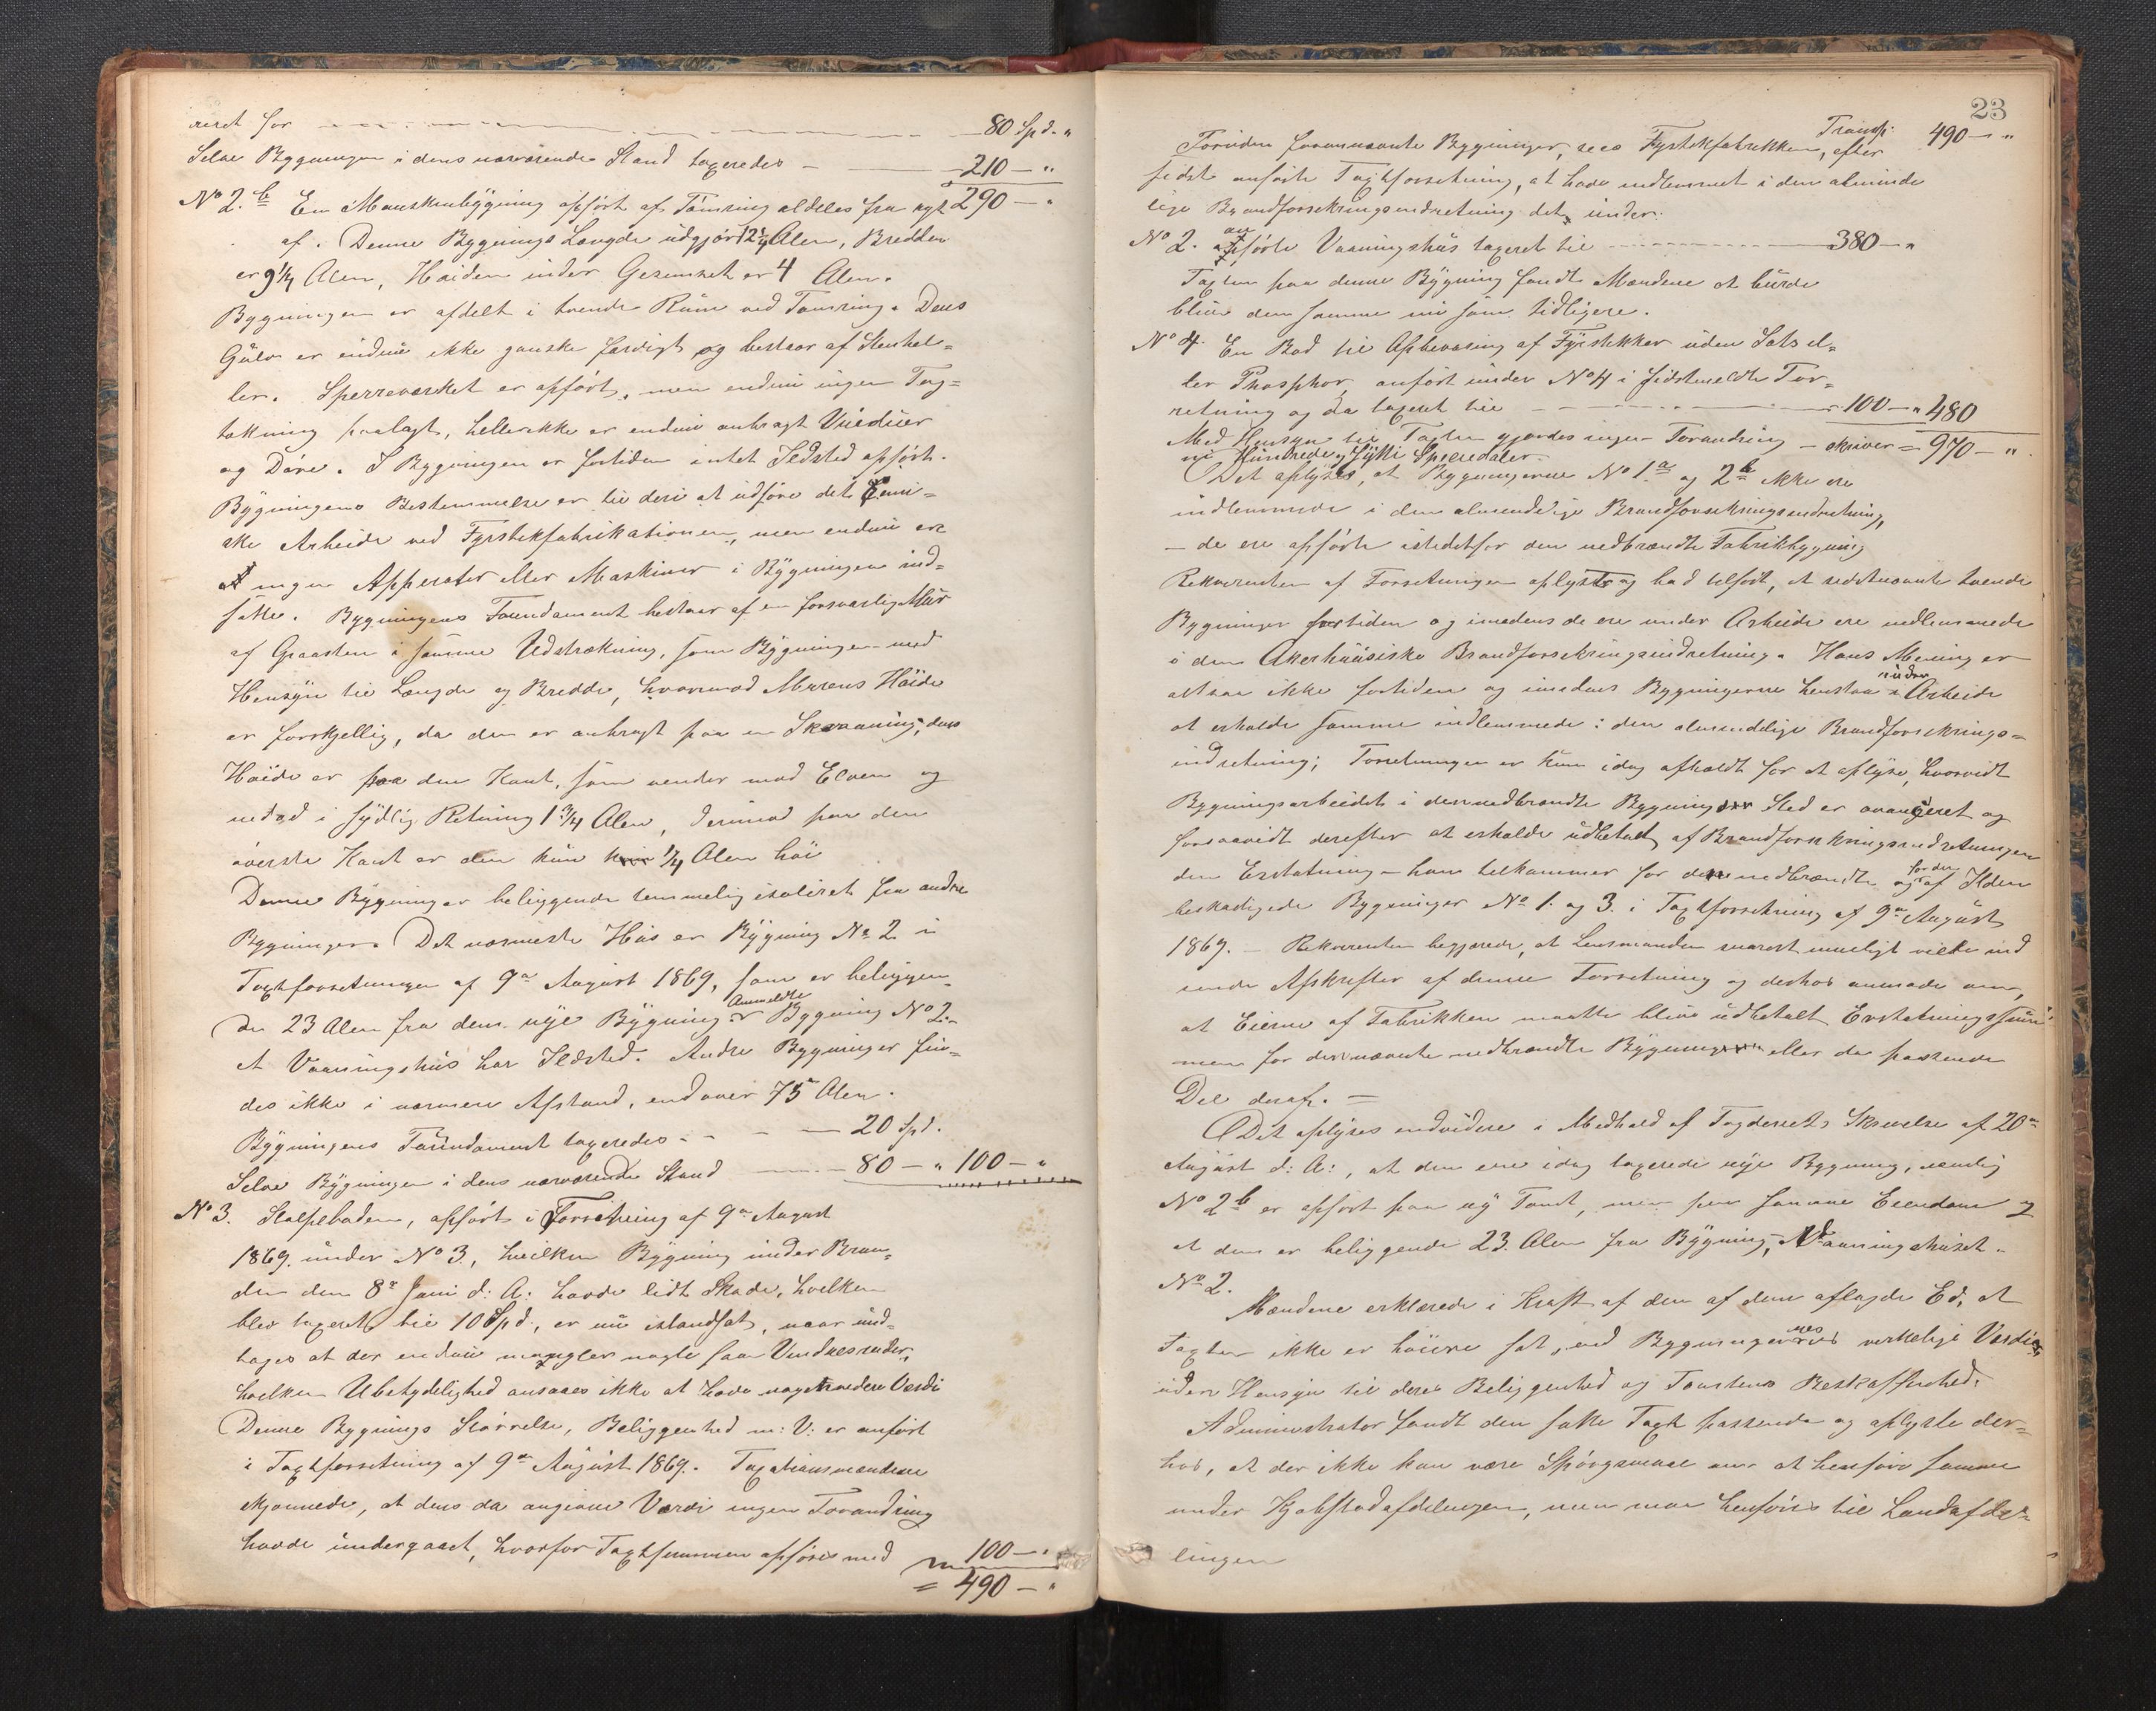 reret for 80 Spd. "
Selve Bygningen i dens nærværende Stand taxeredes 210 — "
No 2.b En Maskinbygning opført af Tømring aldeles fra nyt 290 — "
af. Denne Bygnings Længde udgjør 12 1/4 Alen, Bredden
er 9 1/4 Alen, Høiden under Gesimset er 4 Alen.
Bygningen er afdelt i tvende Rum ved Tømring. Dens
Gulv er endnu ikke ganske færdigt og bestaar af Stenhel-
ler. Sperreværket er opført, men endnu ingen Tag-
tækning paalagt, hellerikke er endnu anbragt Vinduer
og Døre. I Bygningen er fortiden intet Ildsted opført.
Bygningens Bestemmelse er til deri at udføre det kemi-
ske Arbeide ved Fyrstikfabrikationen, men endnu ere
ingen Apperater eller Maskiner i Bygningen ind-
satte. Bygningens Foundament bestaar af en forsvarlig Mur
af Graasten i samme Udstrækning, som Bygningen med
Hensyn til Længde og Bredde, hvorimod Murens Høide
er forskjellig, da den er anbragt paa en Skraaning; dens
Høide er paa den Kant, som vender mod Elven og
nedad i sydlig Retning 1 3/4 Alen, derimod paa den
øverste Kant er den kun 1/4 Alen høi
Denne Bygning er beliggende temmelig isoleret fra andre
Bygninger. Det nærmeste Hus er Bygning No 2 i
Taxtforretningen af 9de August 1869, som er beliggen-
de 23 Alen fra den nye Bygning. Anmeldte Bygning No 2.
et Vaaningshus har Ildsted. Andre Bygninger fin-
des ikke i nærmere Afstand, end over 75 Alen.
Bygningens Foundament taxeredes 20 Spd.
Selve Bygningen i dens nærværende Stand 80 — " 100 — "
No 3. Stolpeboden, opført i Forretning af 9de August
1869. under No 3., hvilken Bygning under Bran-
den den 8de Juni d: A: havde lidt Skade, hvilken
blev taxeret til 10 Spd., er nu istandsat, naar und-
tages at der endnu mangler nogle faa Vinduesruder,
hvilken Ubetydelighed ansaaes ikke at have nogen videre Værdi
Denne Bygnings Størrelse, Beliggenhed m: V: er anført
i Taxtforretning af 9de August 1869. Taxationsmændene
skjønnede, at dens da angivne Værdi ingen Forandring
havde undergaaet, hvorfor Taxtsummen opføres med 100 — "
= 490 — "
23
Transp. 490 — "
Foruden forannævnte Bygninger, sees Fyrstikfabrikken, efter
sidst anførte Taxtforretning, at have indlemmet i den alminde
lige Brandforsikringsindretning det under
No 2. anførte Vaaningshus taxeret til 380 — "
Taxten paa denne Bygning fandt Mændene at burde
blive den samme nu som tidligere.
No 4. En Bod til Opbevaring af Fyrstikker uden Sats el-
ler Phosphor, anført under No 4 i sidstmeldte For-
retning og da taxeret til 100 — " 480
Med Hensyn til Taxten gjordes ingen Forandring — skriver = 970 — "
ni Hundrede og sytti Speciedaler.
Det oplystes, at Bygningerne No 1.a og 2b ikke ere
indlemmede i den almindelige Brandforsikringsindretning,
— de ere opførte istedetfor den nedbrændte Fabrikbygning
Rekvirenten af Forretningen oplyste og bad tilført, at sidstnævnte tvende
Bygninger fortiden og imedens de ere under Arbeide ere indlemmede
i den Akershusiske Brandforsikringsindretning. Hans Mening er
altsaa ikke fortiden og imedens Bygningerne henstaa under Arbeide
at erholde samme indlemmede i den almindelige Brandforsikrings-
indretning; Forretningen er kun idag afholdt for at oplyse, hvorvidt
Bygningsarbeidet i den nedbrændte Bygnings Sted er avanceret og
forsaavidt derefter at erholde udbetalt af Brandforsikringsindretningen
den Erstatning — han tilkommer for den nedbrændte og for den af Ilden
beskadigede Bygninger No 1. og 3. i Taxtforretning af 9de August
1869. — Rekvirenten begjærede, at Lensmanden snarest muligt vilde ind
sende Afskrifter af denne Forretning og derhos anmode om,
at Eierne af Fabrikken maatte blive udbetalt Erstatningssum-
men for den nævnte nedbrændte Bygning eller da passende
Del deraf. =
Det oplyses endvidere i Medhold af Fogderiets Skrivelse af 20de
August d: A:, at den ene idag taxerede nye Bygning, nemlig
No 2b er opført paa ny Tomt, men paa samme Eiendom og
at den er beliggende 23. Alen fra Bygning, Vaaningshuset
No 2.
Mændene erklærede i Kraft af den af dem aflagde Ed, at
Taxten ikke er høiere sat, end Bygningernes virkelige Værdi,
uden Hensyn til deres Beliggenhed og Tomtens Beskaffenhed.
Administrator fandt den satte Taxt passende og oplyste der-
hos, at der ikke kan være Spørgsmaal om at henføre samme
under Kjøbstadafdelingen, men maa henføres til Landafde-
lingen